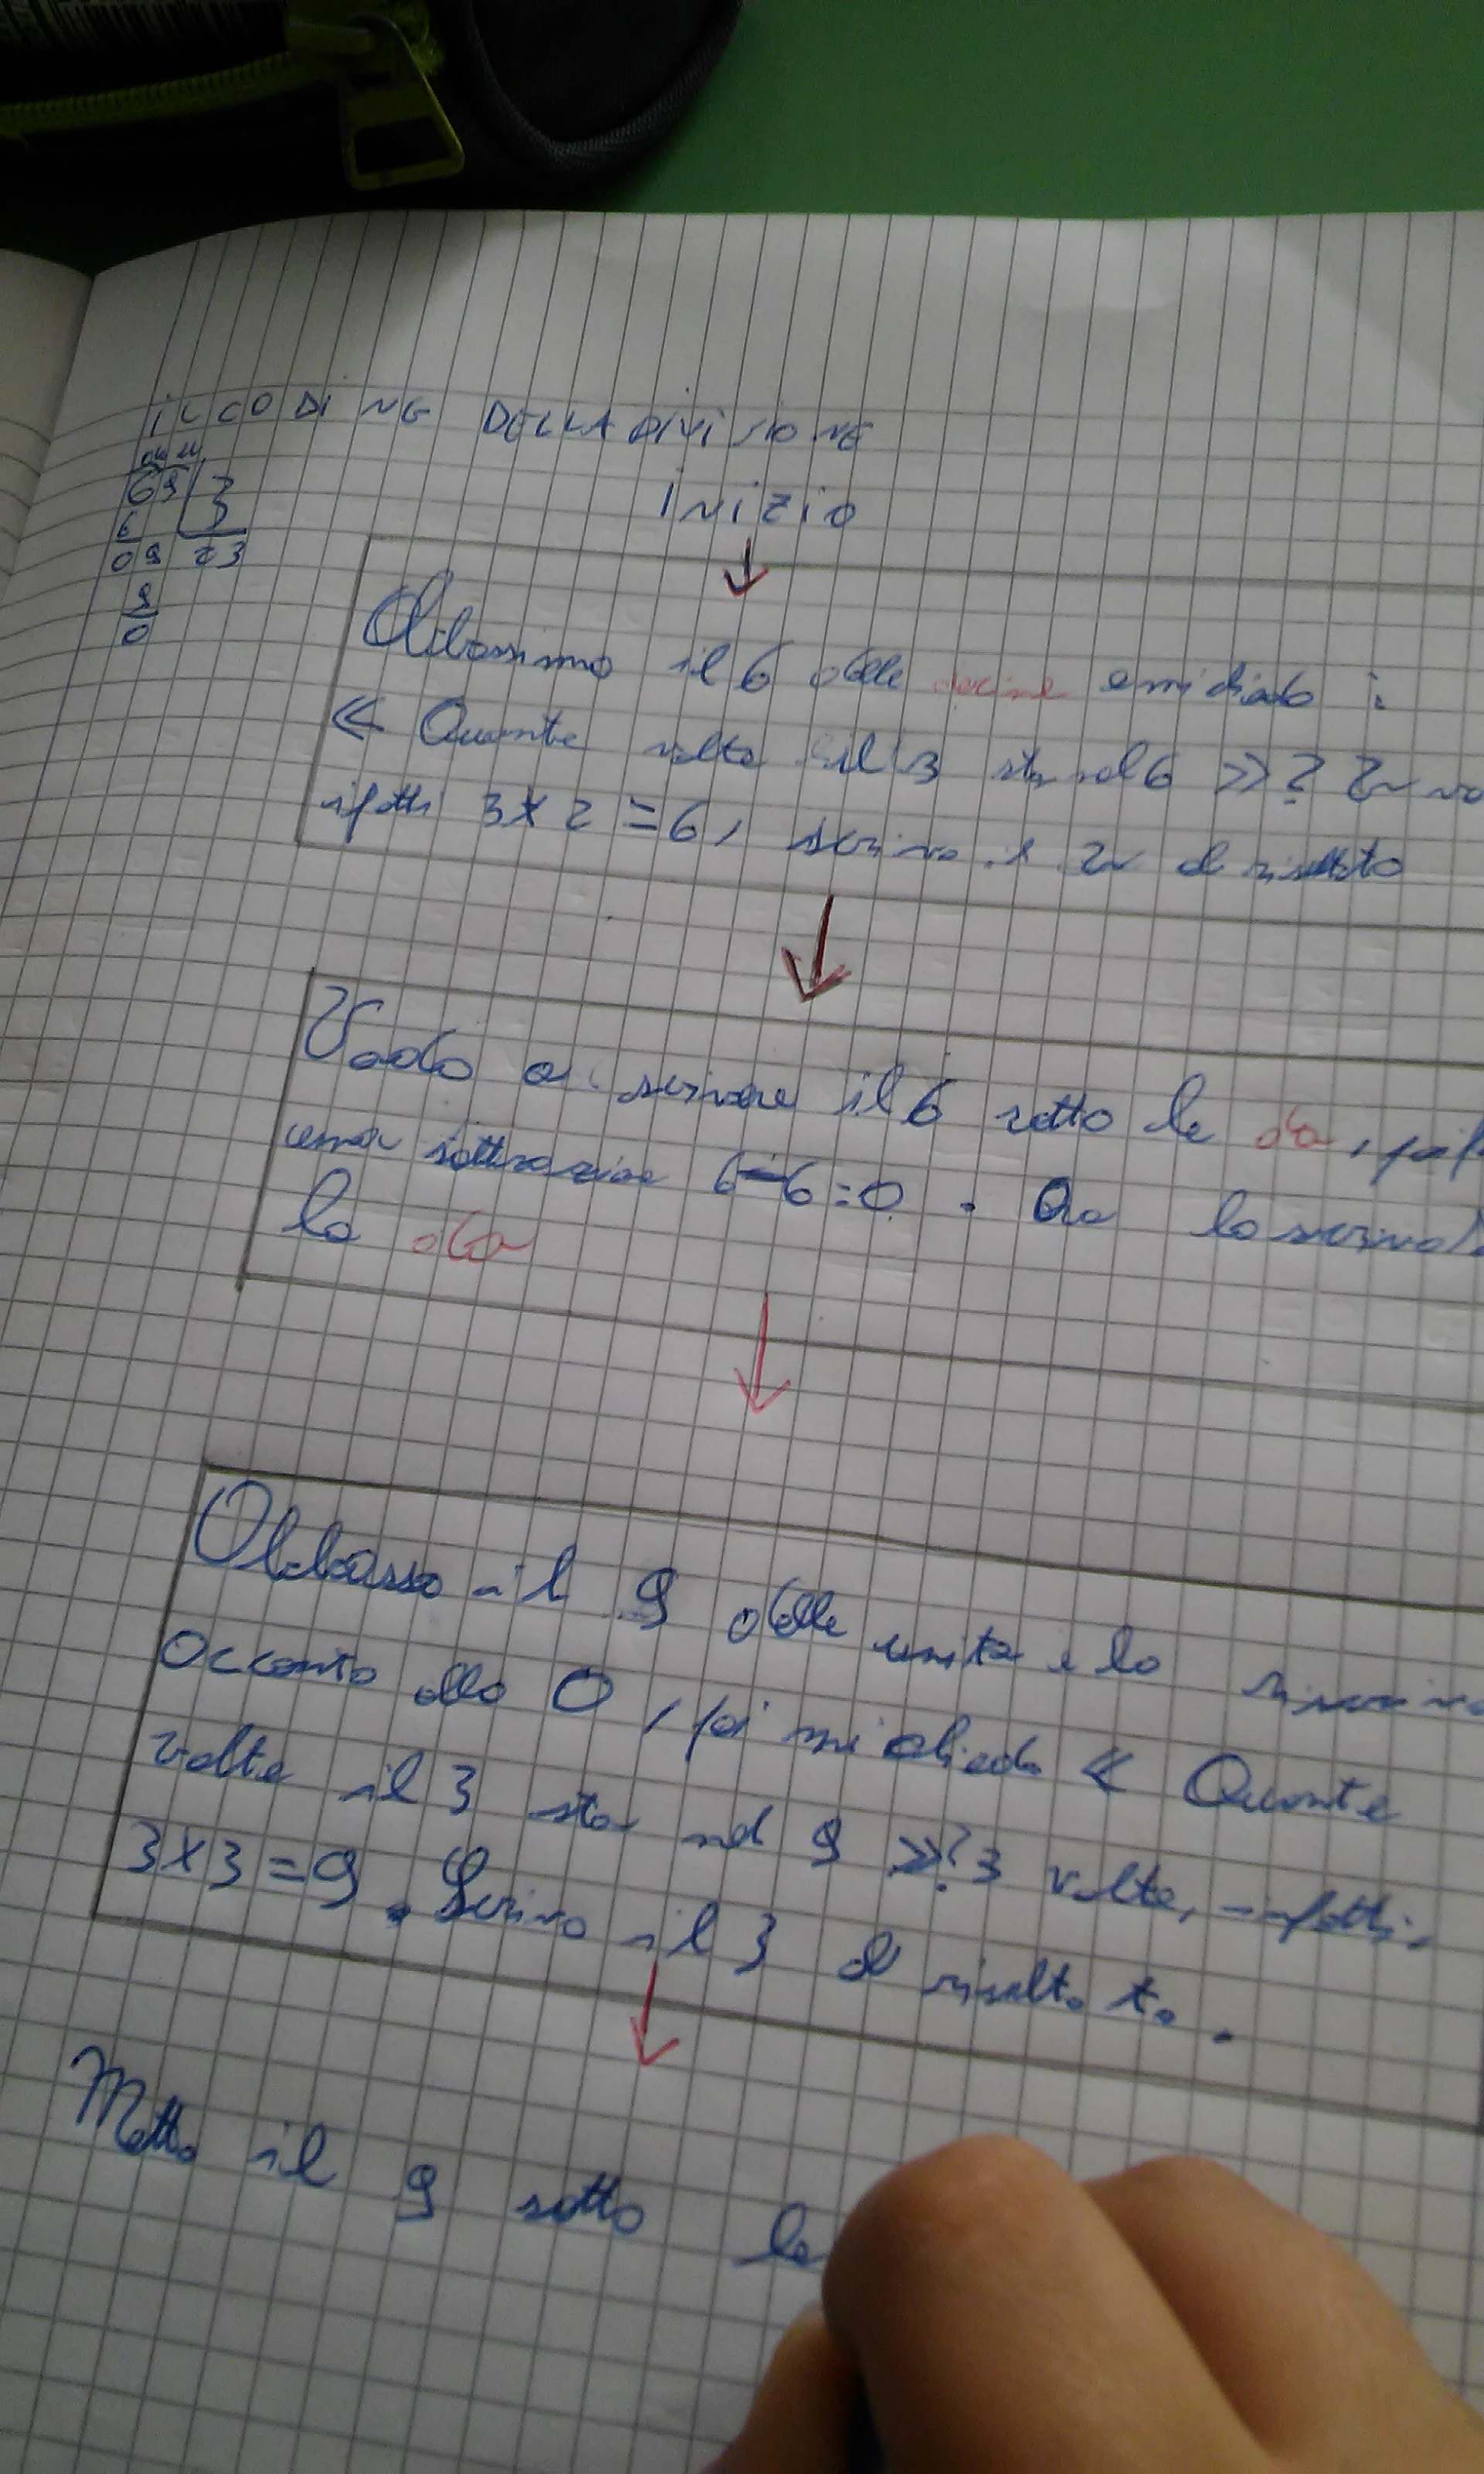 iL CODiNG DELLA DiVISIONE
da u
69 3
6
09 23
9
0
inizio
Abbassimo il 6 delle decine e mi chiedo :
« Quante volte il 3 sta nel 6 »? 2
ifatti 3x2=6, scrivo il 2 al risultato
Vado a scrivere il 6 sotto le da,
una sottrazione 6-6=0. Ora lo scrivo
la da
Abbasso il 9 delle unita e lo riscrivo
accanto allo 0, poi mi chiedo « Quante
volte il 3 sta nel 9 »? 3 volte, infatti.
3x3=9. Scrivo il 3 al risultato.
Metto il 9 sotto le